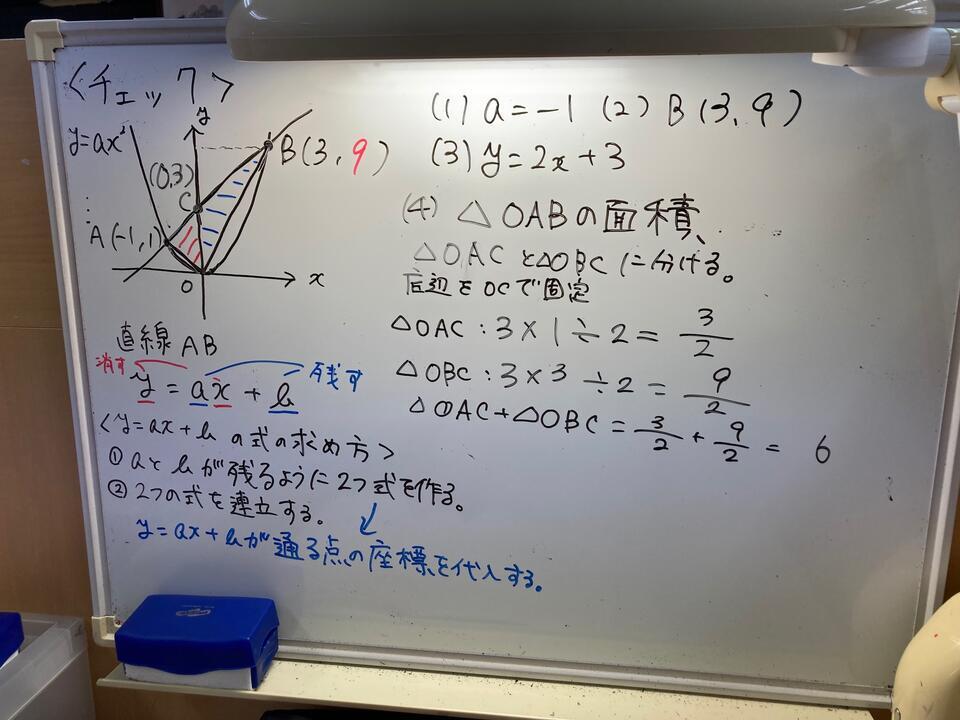 <チェック7>
y
y=ax²
B(3,9)
(0,3)
C
A(-1,1)
O
x
直線AB
消す
残す
y=ax+b
<y=ax+bの式の求め方>
①aとbが残るように2つ式を作る。
②2つの式を連立する。
y=ax+bが通る点の座標を代入する。
(1)a=-1 (2)B(3,9)
(3)y=2x+3
(4)△OABの面積
△OACと△OBCに分ける。
底辺をOCで固定
△OAC:3×1÷2=3/2
△OBC:3×3÷2=9/2
△OAC+△OBC=3/2+9/2=6